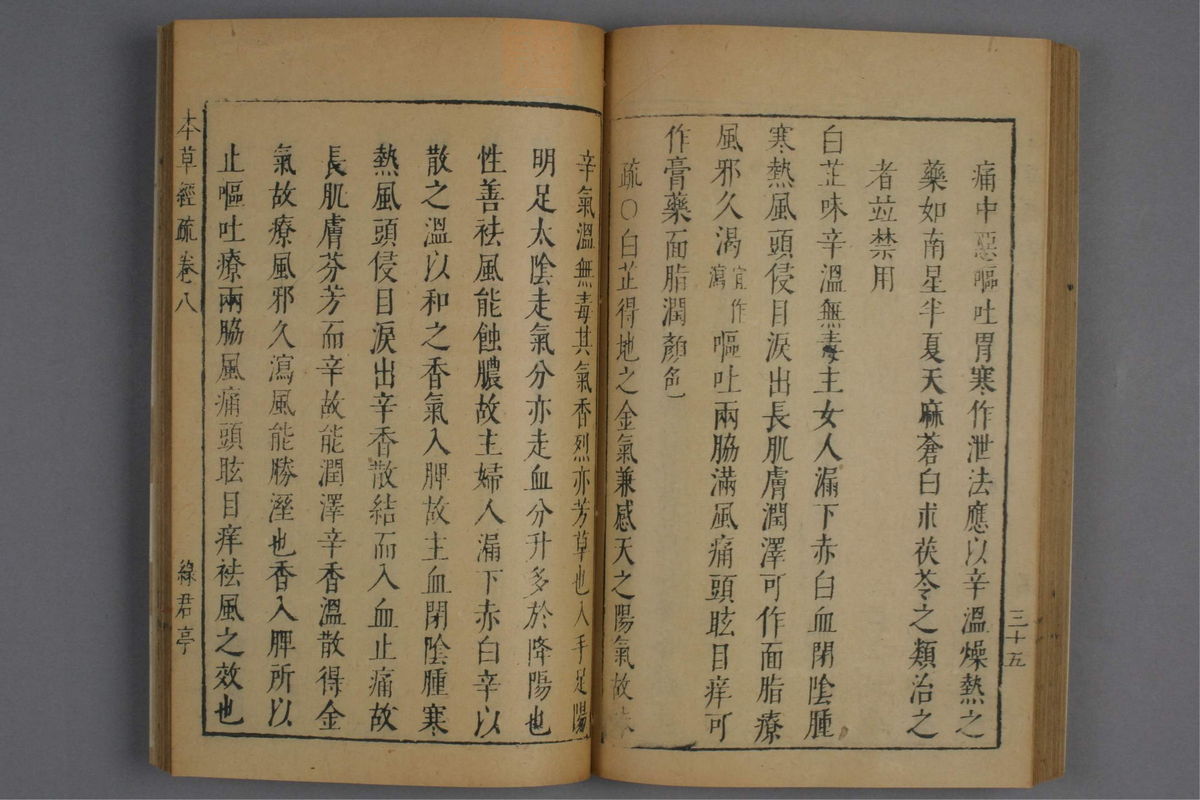 痛中惡嘔吐胃寒作泄法應以辛溫燥熱之
藥如南星半夏天麻蒼白朮茯苓之類治之
者竝禁用
白芷味辛溫無毒主女人漏下赤白血閉陰腫
寒熱風頭侵目淚出長肌膚潤澤可作面脂療
風邪久渴宜作瀉嘔吐兩脇滿風痛頭眩目痒可
作膏藥面脂潤顏色
疏○白芷得地之金氣兼感天之陽氣故味
三十五
辛氣溫無毒其氣香烈亦芳草也入手足陽
明足太陰走氣分亦走血分升多於降陽也
性善祛風能蝕膿故主婦人漏下赤白辛以
散之溫以和之香氣入脾故主血閉陰腫寒
熱風頭侵目淚出辛香散結而入血止痛故
長肌膚芬芳而辛故能潤澤辛香溫散得金
氣故療風邪久瀉風能勝溼也香入脾所以
止嘔吐療兩脇風痛頭眩目痒祛風之效也
本草經疏卷八
綠君亭